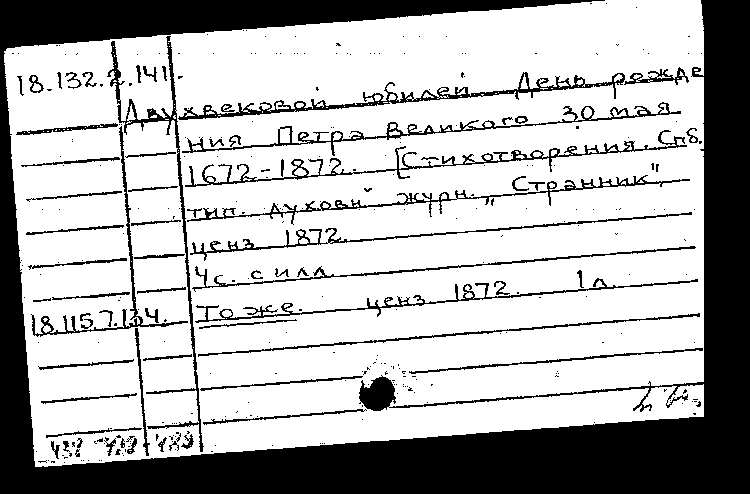 18.132.2.141.
Двухвековой юбилей День рожде
ния Петра Великого 30 мая
1672-1872. [Стихотворения. Спб.
тип. духовн журн. „Странник",
ценз 1872.
4с. с илл
18.115.7.134. То же. ценз 1872. 1л.